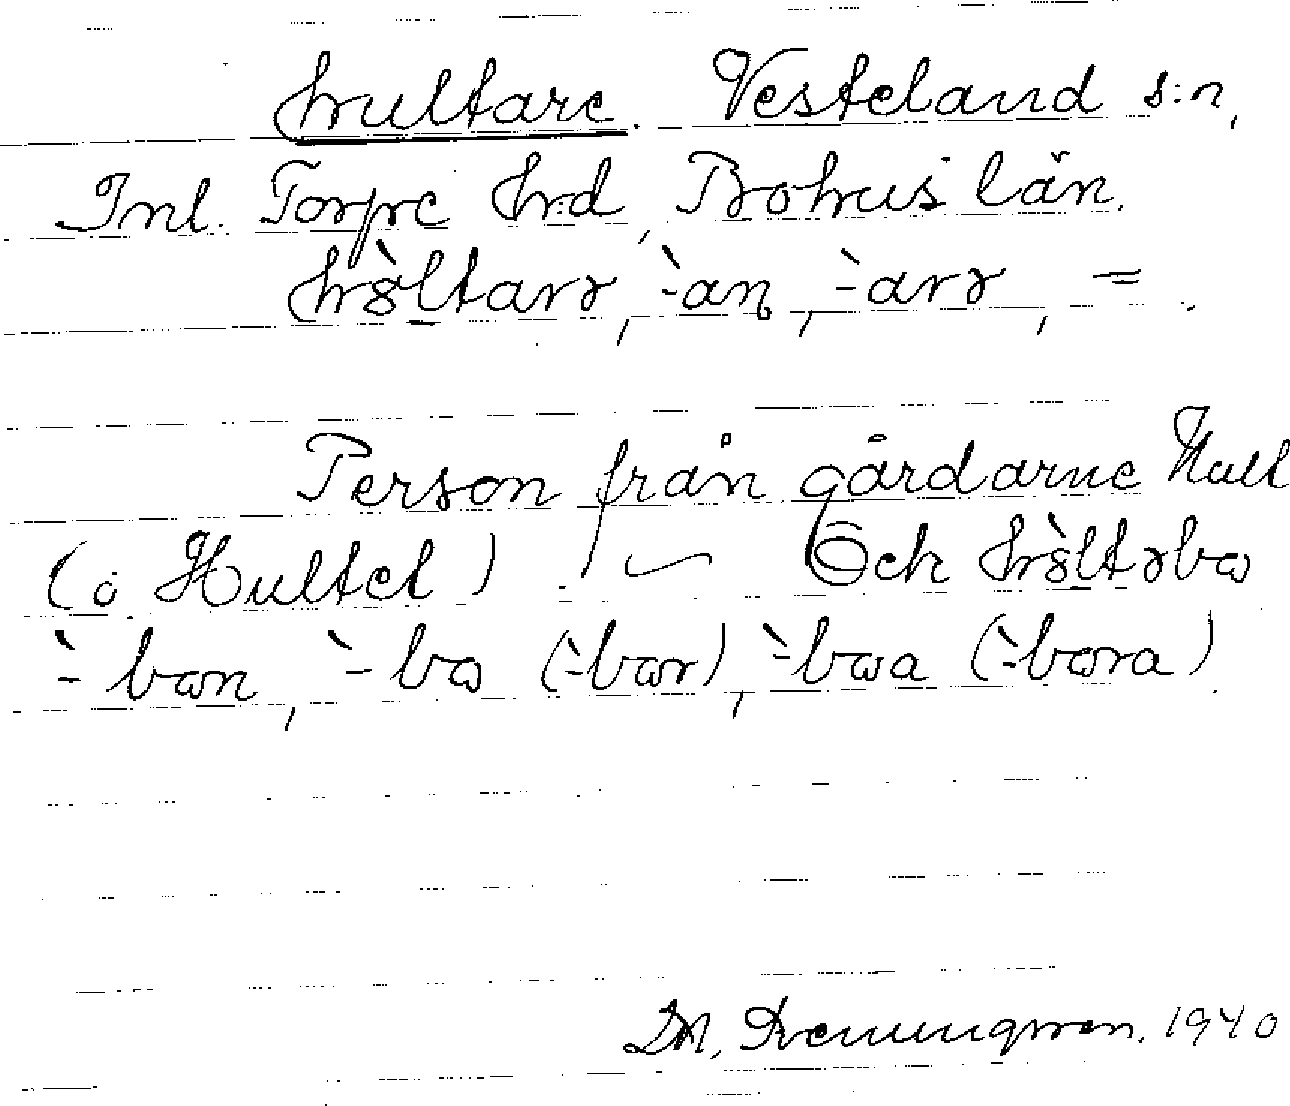 hultare. Vesteland s:n,
Inl. Torpe hrd, Bohus län.
hòltarə, `-an, `-arə, = .
Person från gårdarne Hult
(ö Hultet) . Och hòltəbo
`-bon, `-bo (`-bor), `-boa (`-bora).
1940